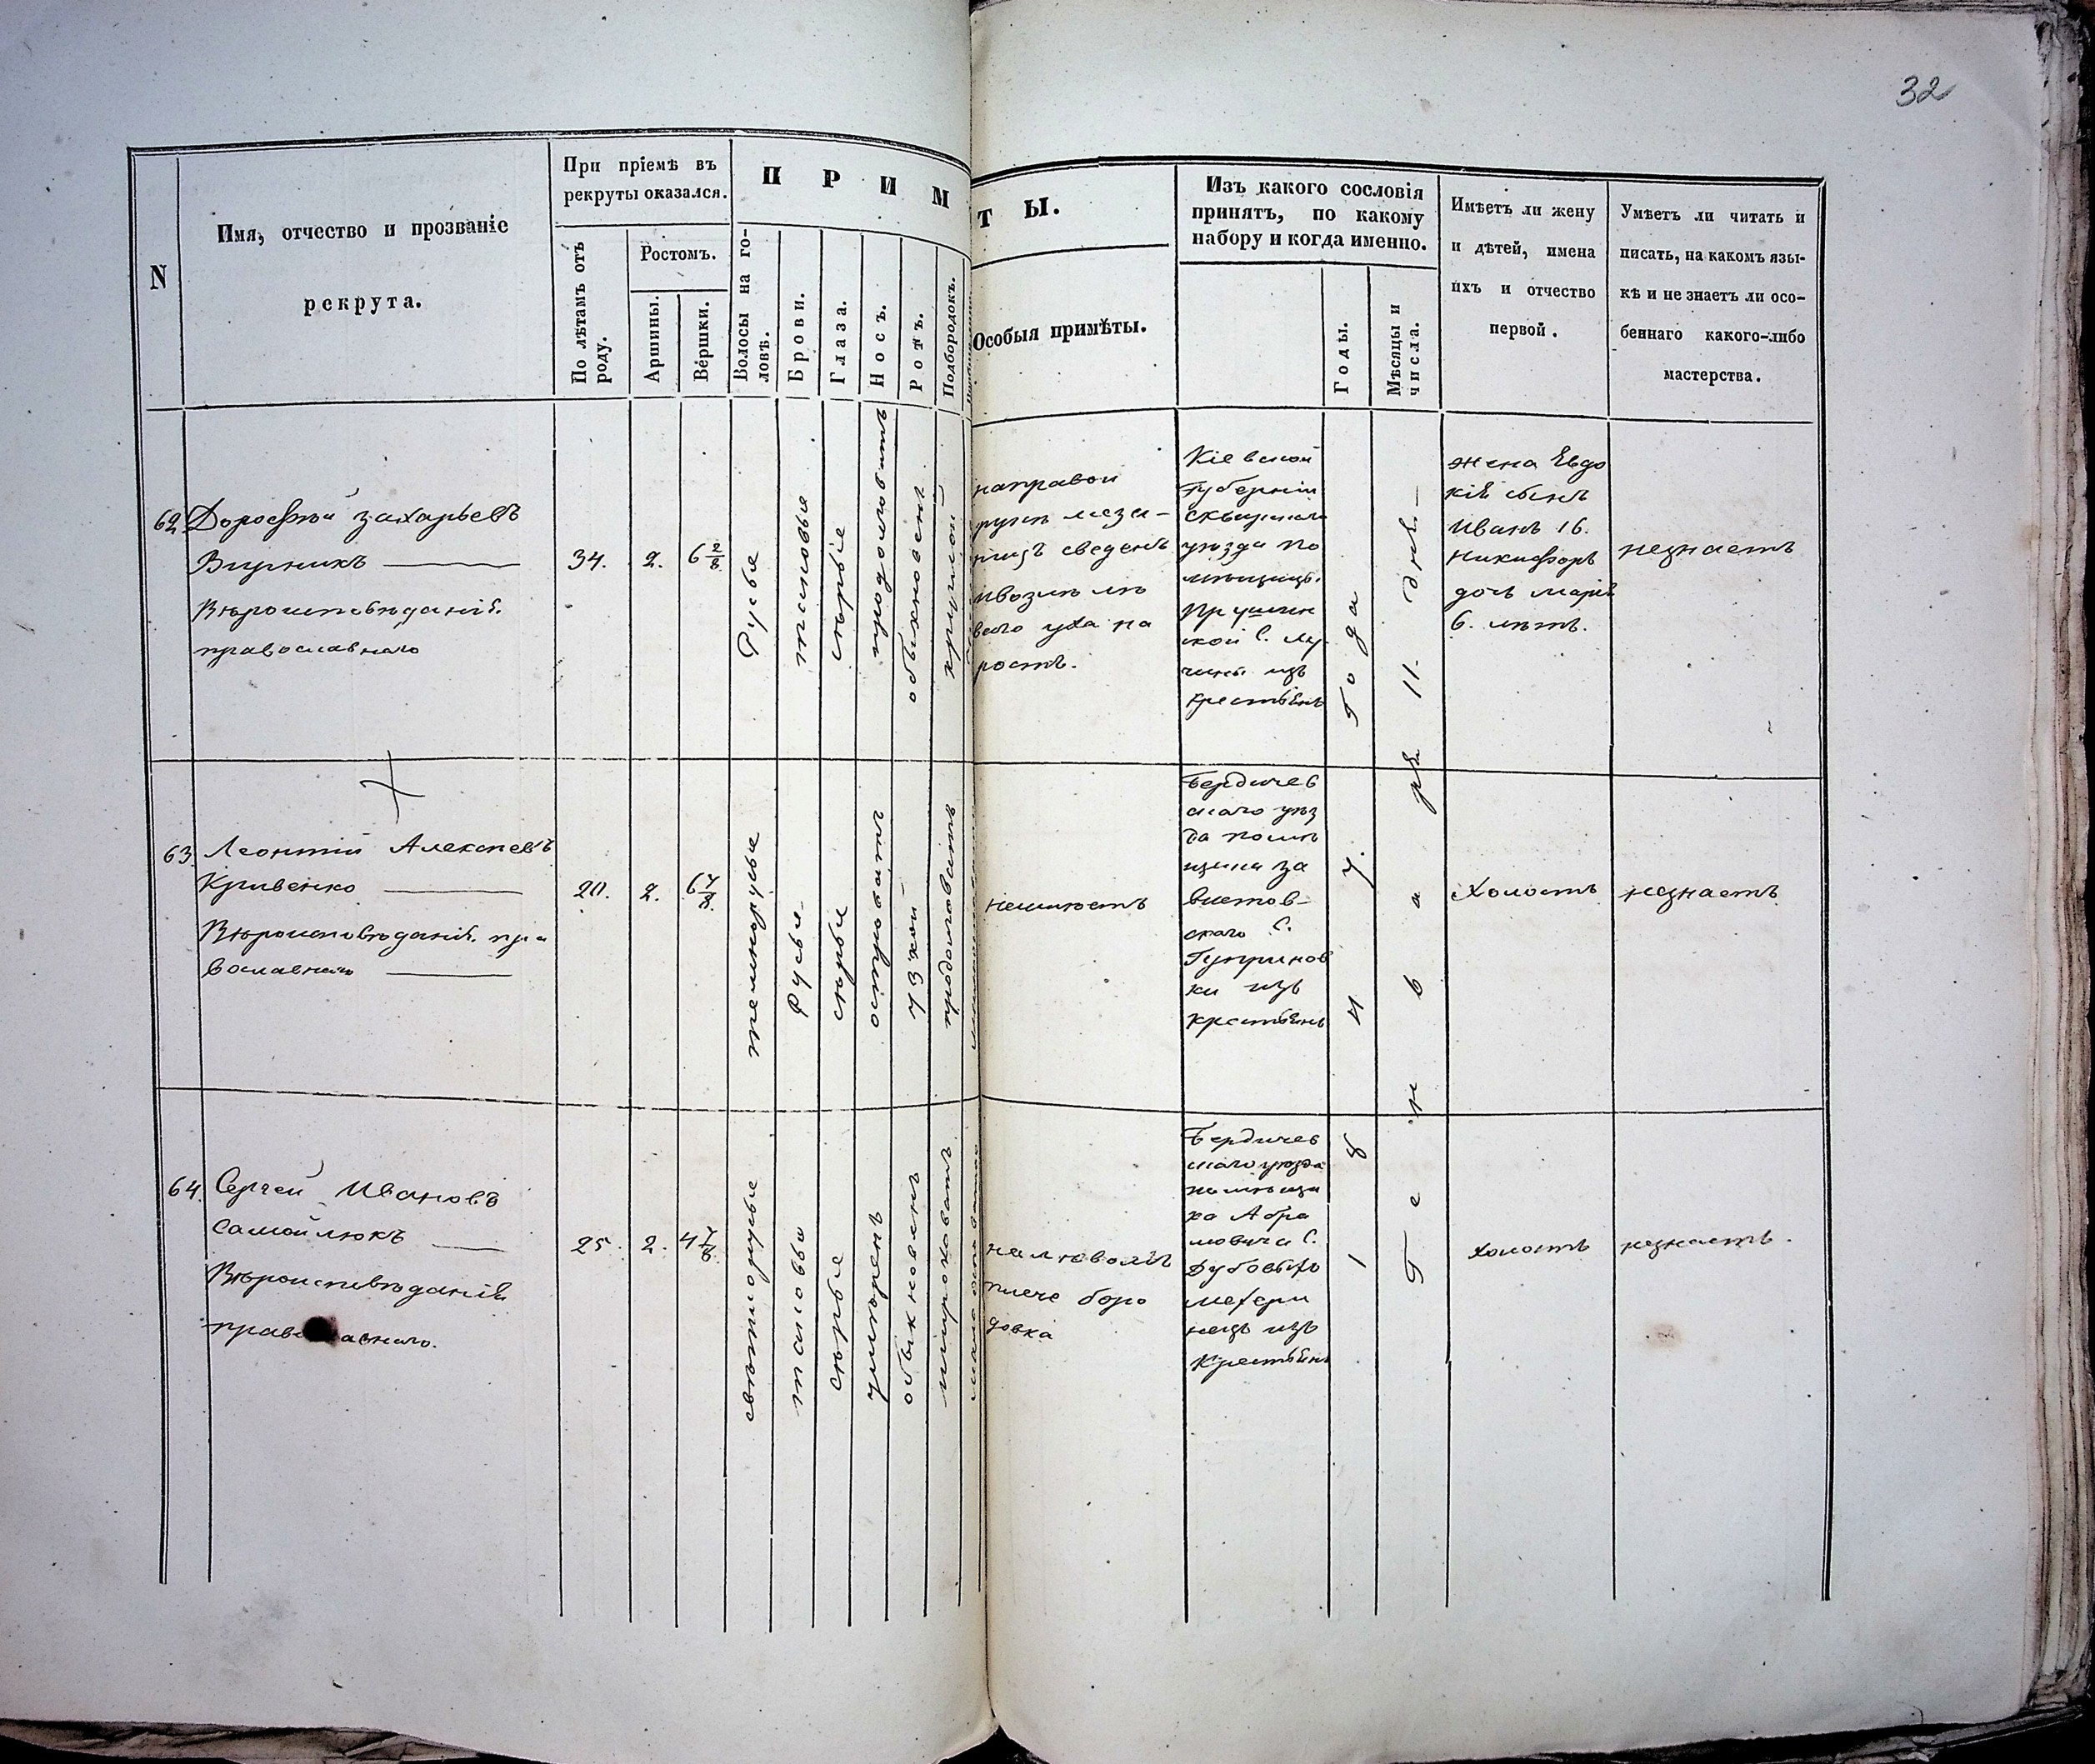 32
N
Имя, отчество и прозваніе
рекрута.
При пріемѣ въ
рекруты оказался.
По лѣтамъ отъ
роду.
Ростомъ.
Аршины.
Вершки.
П Р И М
Волосы на го-
ловѣ.
Брови.
Глаза.
Носъ.
Ротъ.
Подбородокъ.
Т Ы.
Особыя примѣты.
Изъ какого сословія
принятъ, по какому
набору и когда именно.
Годы.
Мѣсяцы и
числа.
Имѣетъ ли жену
и дѣтей, имена
ихъ и отчество
первой.
Умѣетъ ли читать и
писать, на какомъ язы-
кѣ и не знаетъ ли осо-
беннаго какого-либо
мастерства.
62
Дорофей Захарьевъ
Вирникъ
Вѣроисповѣданія
православнаго
34.
2.
6 2/8
Русые
таковые
сѣрые
продолговатъ
обыкновенъ
круглой
направой
руки мези-
нецъ сведенъ
возлѣ лѣ
ваго уха на
ростъ.
Кіевской
Губерніи
Сквирскаго
уѣзда по
мѣщицы
кой С. Лу-
чина изъ
крестьянъ
жена Евдо
кія сынъ
Иванъ 16.
Никифоръ
дочь Марія
6. лѣтъ.
незнаетъ
63.
Леонтій Алексѣевъ
Кривенко
Вѣроисповѣданія пра
вославнаго
20.
2.
6 7/8
темнорусые
Русые
сѣрые
островатъ
узкой
продолговатъ
неимѣетъ
Бердичев
скаго уѣз
да помѣ
щика За
вистов-
скаго С.
ки изъ
крестьянъ
Холостъ
незнаетъ
64.
Сергей Ивановъ
Самойлюкъ
Вѣроисповѣданія
православнаго.
25.
2.
4 7/8
свѣтлорусые
таковые
сѣрые
умѣренъ
обыкновенъ
широковатъ
на лѣвомъ
плече боро
довка
Бердичев
скаго уѣзда
помѣщи
ка Абра
мовича С.
Дубовыхъ
Махари
нецъ изъ
Крестьянъ
1847 Года
Генваря 11. дня
холостъ
незнаетъ.